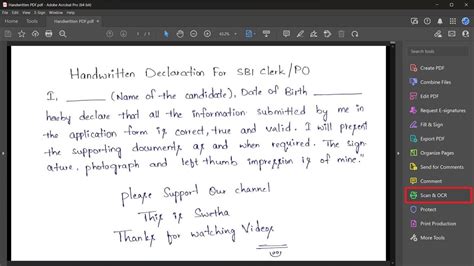 Handwritten PDF.pdf - Adobe Acrobat Pro (64-bit)
File Edit View E-Sign Window Help
Home Tools Handwritten PDF.pdf
1 / 1
Handwritten Declaration For SBI Clerk/PO
I, ________ (Name of the candidate), Date of Birth ________
hereby declare that all the information submitted by me in
the application form is correct, true and valid. I will present
the supporting documents as and when required. The sign
ature, photograph and left thumb impression is of mine."
Please Support Our channel
This is Swetha
Thanks for watching Videos
Search tools
Create PDF
Combine Files
Edit PDF
Request E-signatures
Fill & Sign
Export PDF
Organize Pages
Send for Comments
Comment
Scan & OCR
Protect
Print Production
More Tools